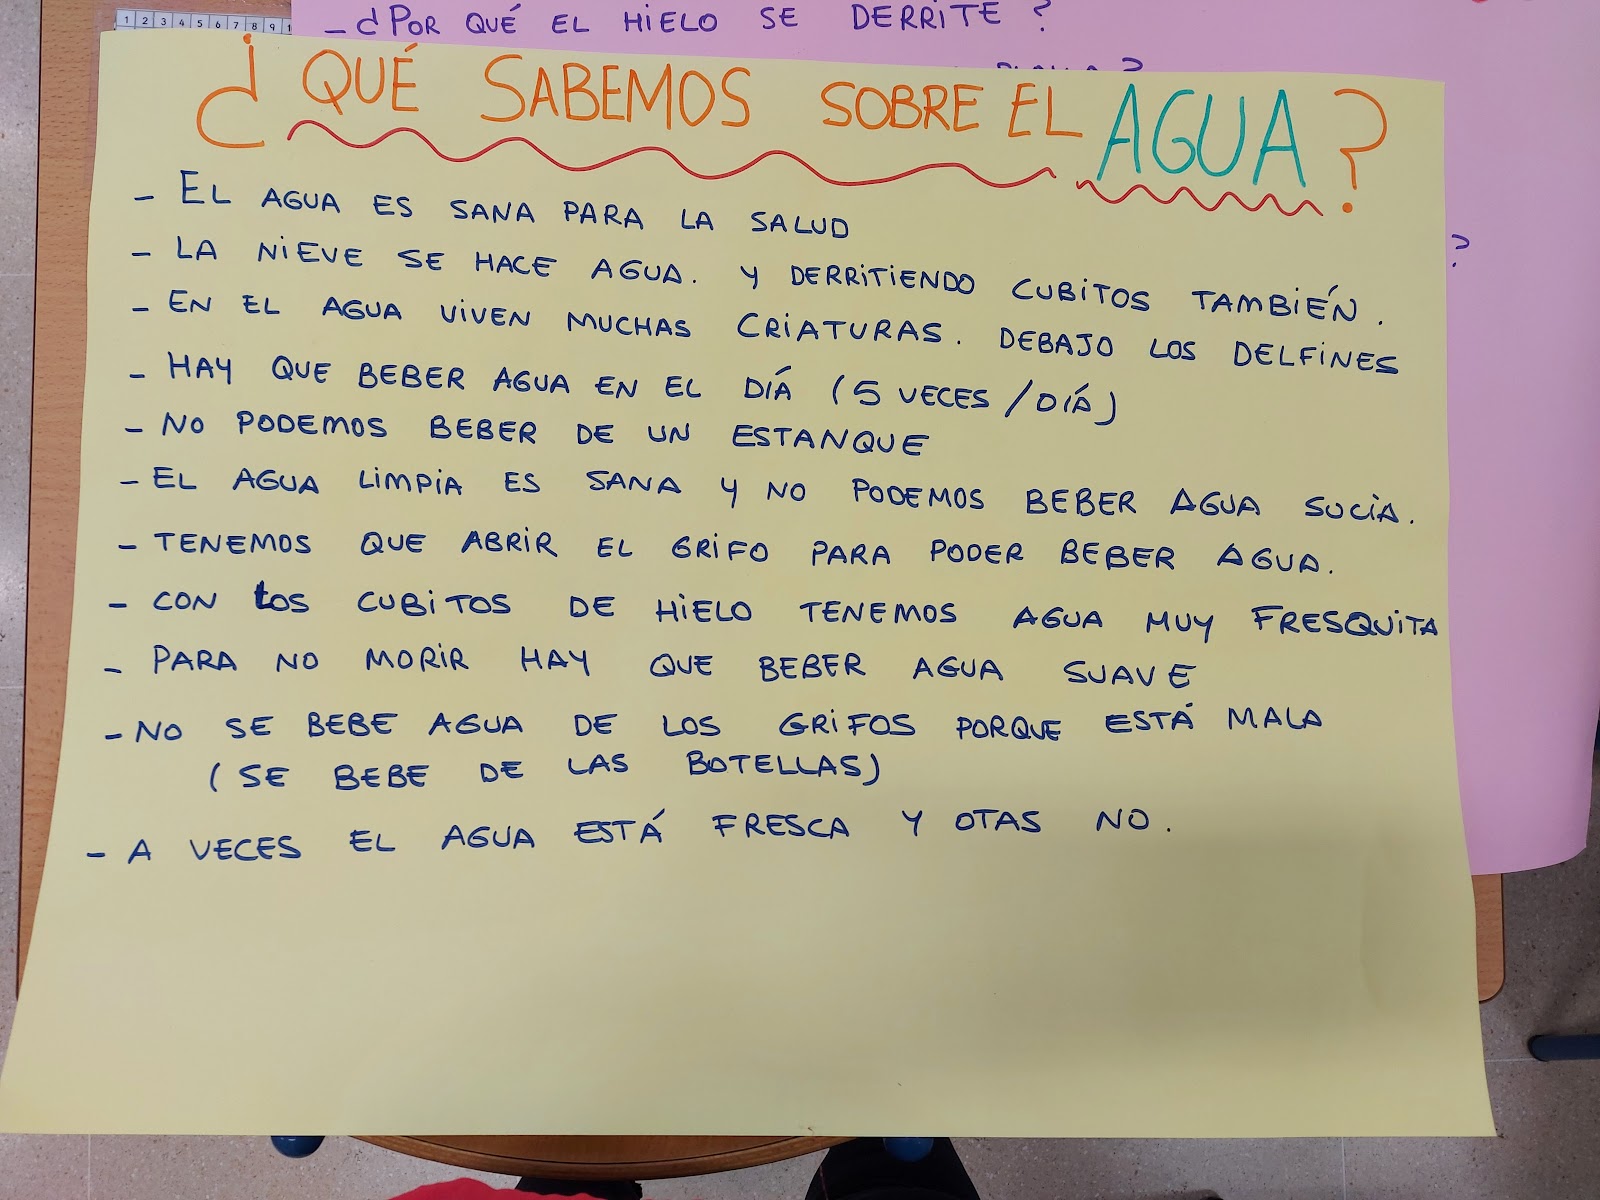 1 2 3 4 5 6 7 8 9 1
- ¿POR QUÉ EL HIELO SE DERRITE ?
?
¿ QUÉ SABEMOS SOBRE EL AGUA ?
- EL AGUA ES SANA PARA LA SALUD
- LA NIEVE SE HACE AGUA. Y DERRITIENDO CUBITOS TAMBIÉN.
- EN EL AGUA VIVEN MUCHAS CRIATURAS. DEBAJO LOS DELFINES
- HAY QUE BEBER AGUA EN EL DÍA (5 VECES / DÍA)
- NO PODEMOS BEBER DE UN ESTANQUE
- EL AGUA LIMPIA ES SANA Y NO PODEMOS BEBER AGUA SUCIA.
- TENEMOS QUE ABRIR EL GRIFO PARA PODER BEBER AGUA.
- CON LOS CUBITOS DE HIELO TENEMOS AGUA MUY FRESQUITA
- PARA NO MORIR HAY QUE BEBER AGUA SUAVE
- NO SE BEBE AGUA DE LOS GRIFOS PORQUE ESTÁ MALA
(SE BEBE DE LAS BOTELLAS)
- A VECES EL AGUA ESTÁ FRESCA Y OTAS NO.
?